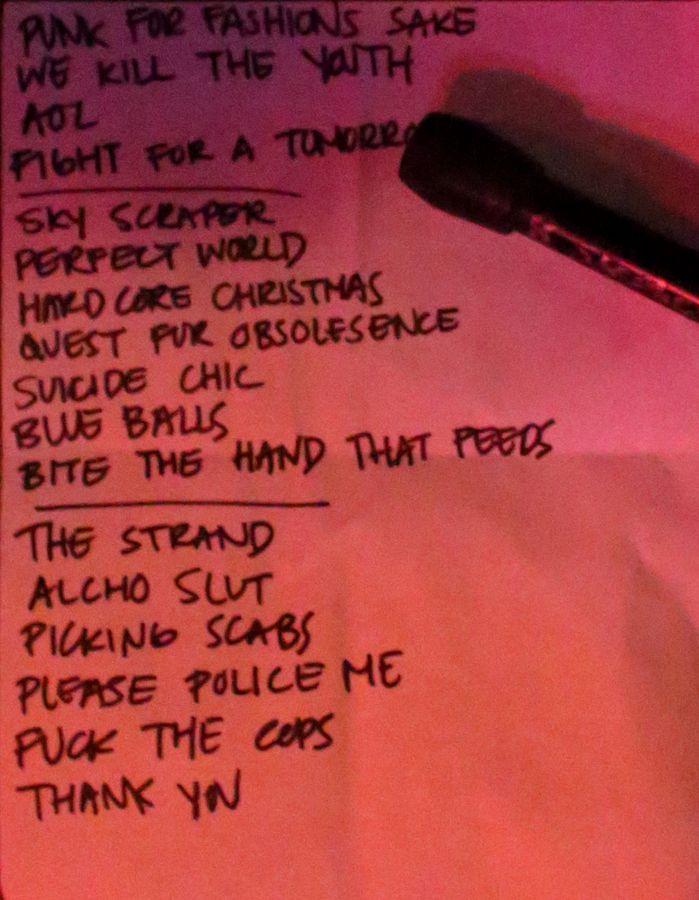 PUNK FOR FASHIONS SAKE
WE KILL THE YOUTH
AOL
FIGHT FOR A TOMORRO
SKY SCRAPER
PERFECT WORLD
HARDCORE CHRISTMAS
QUEST FUR OBSOLESENCE
SUICIDE CHIC
BLUE BALLS
BITE THE HAND THAT FEEDS
THE STRAND
ALCHO SLUT
PICKING SCABS
PLEASE POLICE ME
FUCK THE COPS
THANK YOU